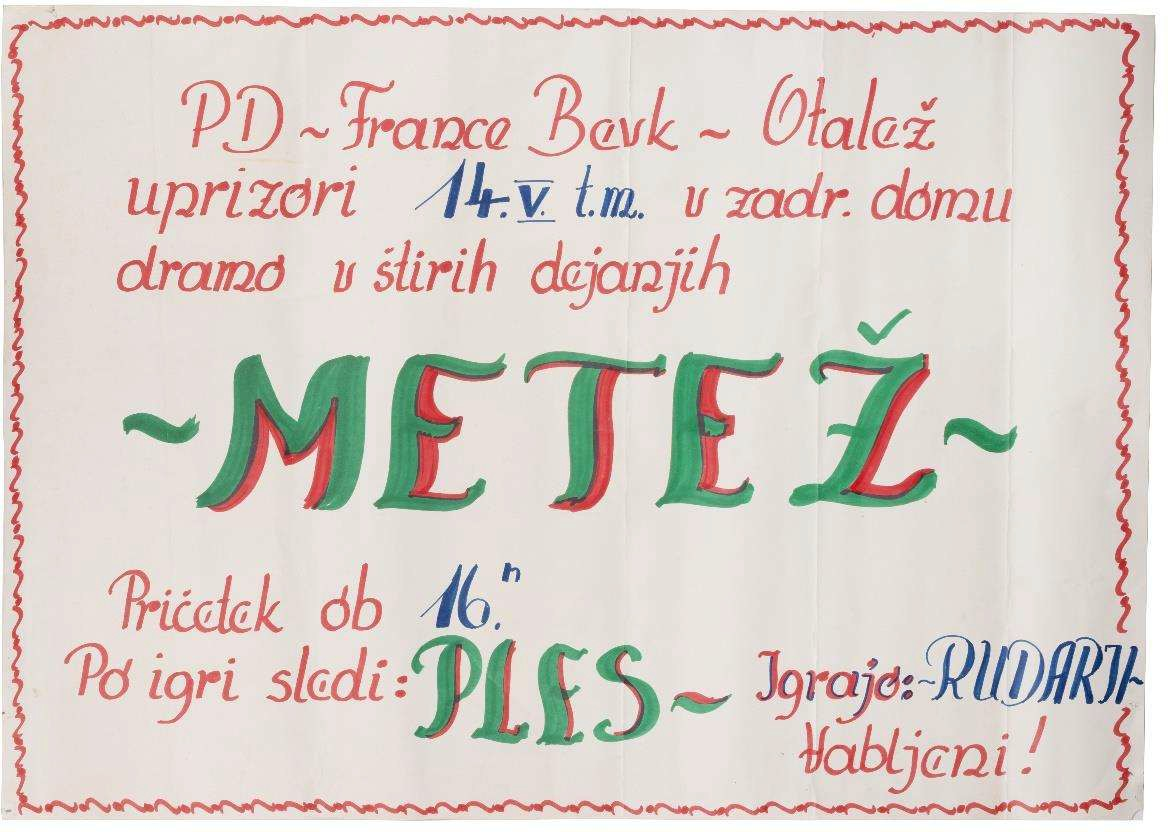 PD ~ France Bevk ~ Otalež
uprizori 14. V. t.m. v zadr. domu
dramo v štirih dejanjih
~ METEŽ ~
Pričetek ob 16.h
Po igri sledi: PLES ~ Igrajo: ~RUDARJI~
Vabljeni!